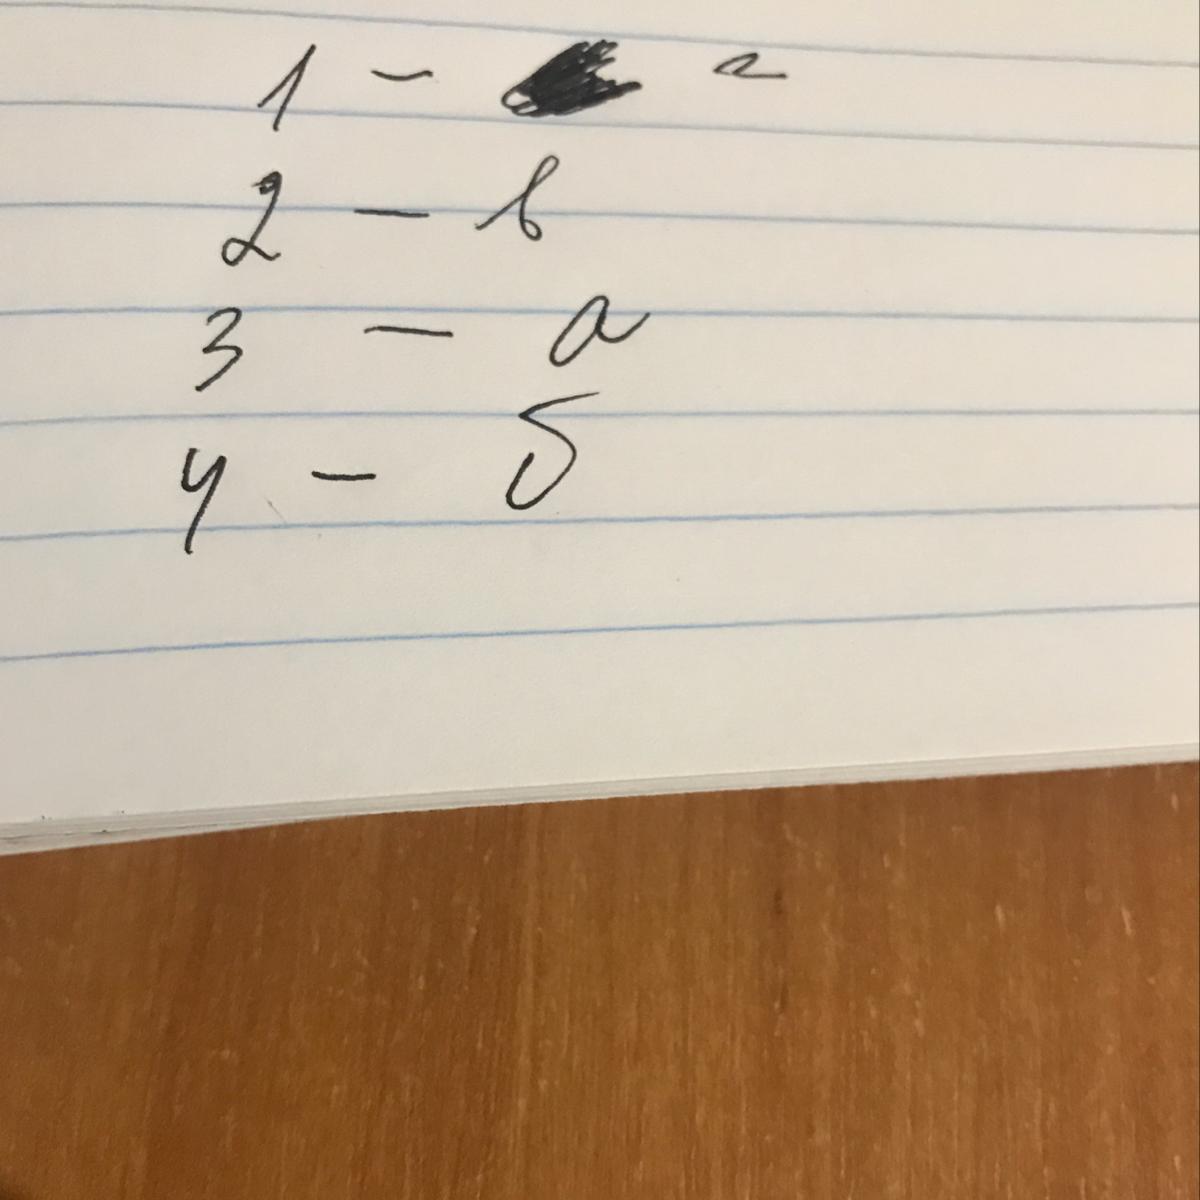 1 - г
2 - в
3 - а
4 - б